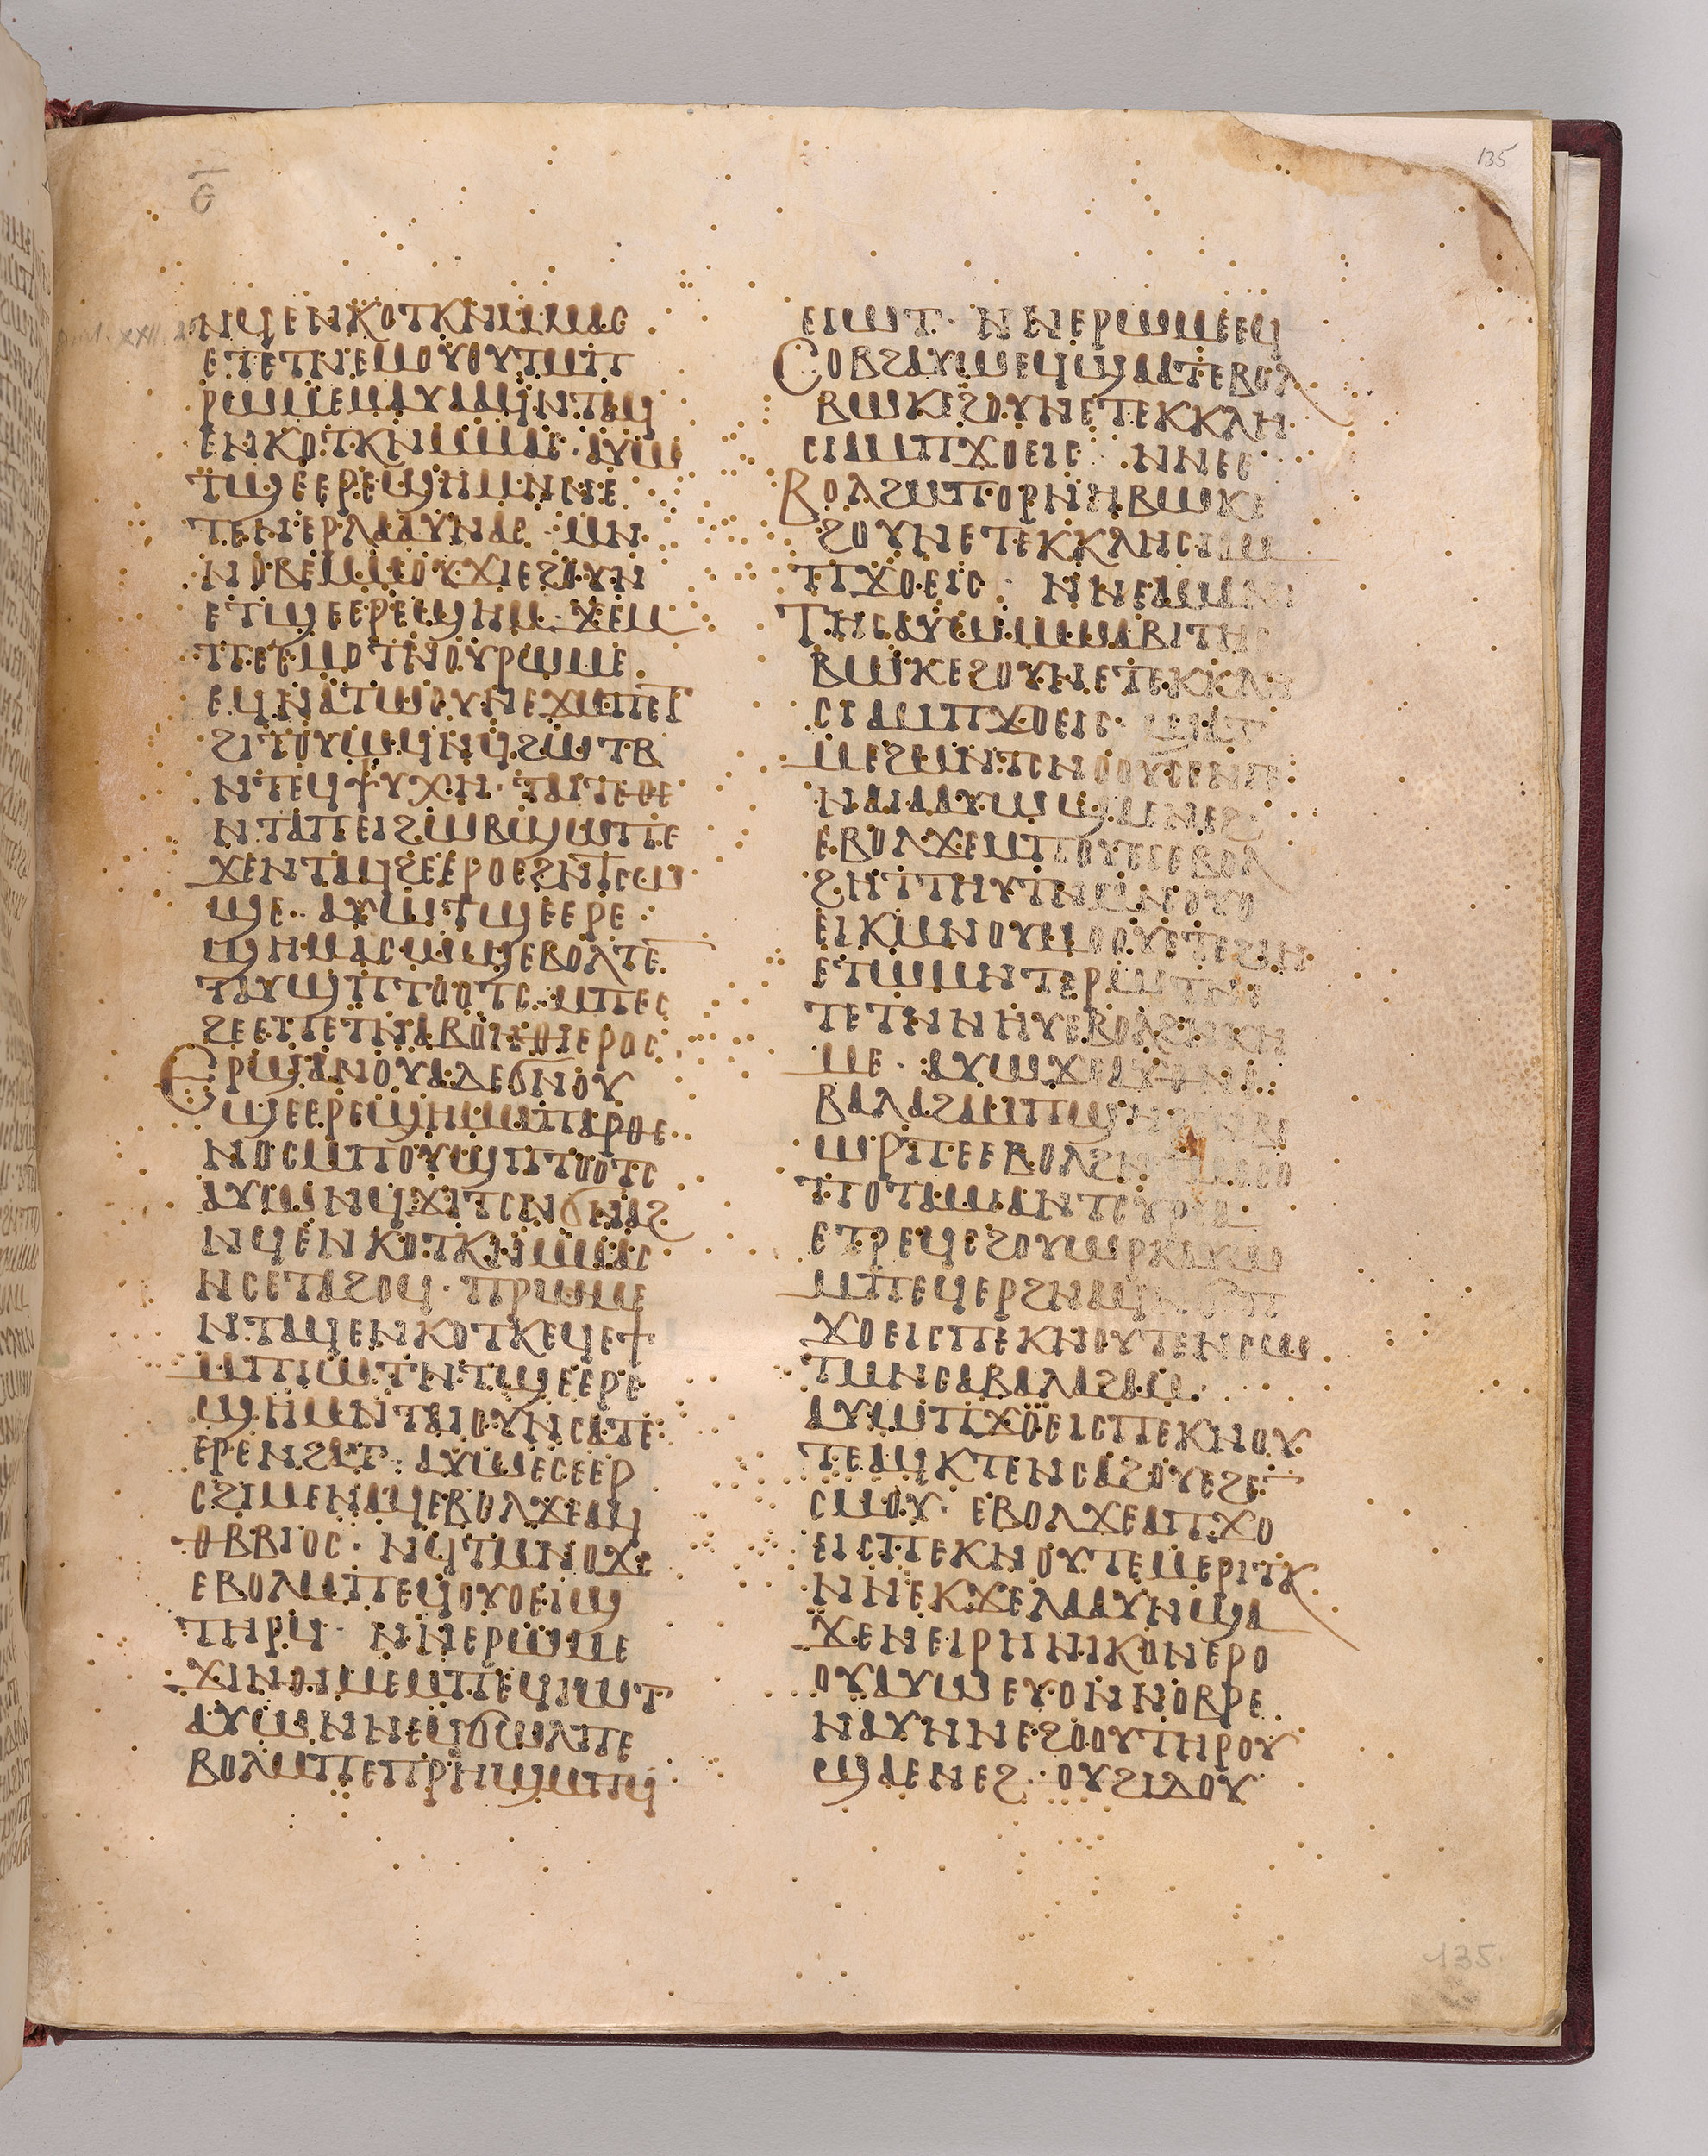 ⲑ̄
135
ⲛϥⲉⲛⲕⲟⲧⲕⲛⲙⲙⲁⲥ
ⲉⲧⲉⲧⲛⲉⲙⲟⲩⲟⲩⲧⲙⲡ
ⲣⲱⲙⲉⲙⲁⲩⲁⲁϥⲛⲧⲁϥ
ⲉⲛⲕⲟⲧⲕⲛⲙⲙⲁⲥ· ⲁⲩⲱ
ⲧϣⲉⲉⲣⲉϣⲏⲙⲛⲛⲉ
ⲧⲉⲛⲉⲣⲗⲁⲁⲩⲛⲁⲥ· ⲙⲛ
ⲛⲟⲃⲉⲙⲙⲟⲩϫⲓⲉϩⲟⲩⲛ
ⲉⲧϣⲉⲉⲣⲉϣⲏⲙ· ϫⲉⲙ
ⲡⲉⲥⲙⲟⲧⲛⲟⲩⲣⲱⲙⲉ
ⲉϥⲛⲁⲧⲱⲟⲩⲛⲉϫⲙⲡⲉⲧ
ϩⲓⲧⲟⲩⲱϥⲛϥϩⲱⲧⲃ
ⲛⲧⲉϥⲯⲩⲭⲏ· ⲧⲁⲓⲧⲉⲑⲉ
ⲛⲧⲁⲡⲉⲓϩⲱⲃϣⲱⲡⲉ
ϫⲉⲛⲧⲁϥϩⲉⲉⲣⲟⲥϩⲛⲧⲥⲱ
ϣⲉ· ⲁⲩⲱⲧϣⲉⲉⲣⲉ
ϣⲏⲙⲁⲥⲱϣⲉⲃⲟⲗⲧⲉ
ⲧⲁⲩϣⲡⲧⲟⲟⲧⲥ· ⲙⲡⲉⲥ
ϩⲉⲉⲡⲉⲧⲛⲁⲃⲟⲏⲑⲓⲉⲣⲟⲥ
Ⲉⲣϣⲁⲛⲟⲩⲁⲇⲉϭⲛⲟⲩ
ϣⲉⲉⲣⲉϣⲏⲙⲙⲡⲁⲣⲑⲉ
ⲛⲟⲥⲙⲡⲟⲩϣⲡⲧⲟⲟⲧⲥ
ⲁⲩⲱⲛϥϫⲓⲧⲥⲛϭⲛⲁϩ
ⲛϥⲉⲛⲕⲟⲧⲕⲛⲙⲙⲁⲥ
ⲛⲥⲉⲧⲁϩⲟϥ· ⲡⲣⲱⲙⲉ
ⲛⲧⲁϥⲉⲛⲕⲟⲧⲕⲉϥⲉϯ
ⲙⲡⲓⲱⲧⲛⲧϣⲉⲉⲣⲉ
ϣⲏⲙⲛⲧⲁⲓⲟⲩⲛⲥⲁⲧⲉ
ⲉⲣⲉⲛϩⲁⲧ· ⲁⲩⲱⲉⲥⲉⲉⲣ
ⲥϩⲓⲙⲉⲛⲁϥⲉⲃⲟⲗϫⲉⲁϥ
ⲑⲃⲃⲓⲟⲥ· ⲛϥⲧⲙⲛⲟϫⲥ
ⲉⲃⲟⲗⲙⲡⲉϥⲟⲩⲟⲉⲓϣ
ⲧⲏⲣϥ· ⲛⲛⲉⲣⲱⲙⲉ
ϫⲓⲛⲑⲓⲙⲉⲙⲡⲉϥⲓⲱⲧ
ⲁⲩⲱⲛⲛⲉϥϭⲱⲗⲡⲉ
ⲃⲟⲗⲙⲡⲉⲡⲣⲏϣⲙⲡϥ
ⲉⲓⲱⲧ· ⲛⲛⲉⲣⲱⲙⲉⲉϥ
Ⲥⲟⲃϩⲁⲩⲱⲉϥϣⲁⲁⲧⲉⲃⲟⲗ
ⲃⲱⲕⲉϩⲟⲩⲛⲉⲧⲉⲕⲕⲗⲏ
ⲥⲓⲁⲙⲡϫⲟⲉⲓⲥ· ⲛⲛⲉⲉ
Ⲃⲟⲗϩⲙⲡⲟⲣⲛⲏⲃⲱⲕⲉ
ϩⲟⲩⲛⲉⲧⲉⲕⲕⲗⲏⲥⲓⲁⲙ
ⲡϫⲟⲉⲓⲥ· ⲛⲛⲉⲁⲙⲙⲁⲛⲓ
Ⲧⲏⲥⲁⲩⲱⲙⲱⲁⲃⲓⲧⲏⲥ
ⲃⲱⲕⲉϩⲟⲩⲛⲉⲧⲉⲕⲕⲗⲏ
ⲥⲓⲁⲙⲡϫⲟⲉⲓⲥ· ϣⲁⲡ
ⲙⲉϩⲙⲛⲧⲥⲛⲟⲟⲩⲥⲉⲛⲧⲉ
ⲛⲁⲓⲁⲩⲱϣⲁⲉⲛⲉϩ
ⲉⲃⲟⲗϫⲉⲙⲡⲟⲩⲉⲓⲉⲃⲟⲗ
ϩⲏⲧⲧⲏⲩⲧⲛⲙⲛⲟⲩⲟ
ⲉⲓⲕⲙⲛⲟⲩⲙⲟⲟⲩϩⲧⲉϩⲓⲏ
ⲉⲧⲙⲙⲛⲧⲉⲣⲱⲧⲛ
ⲧⲉⲧⲛⲛⲏⲩⲉⲃⲟⲗϩⲛⲕⲏ
ⲙⲉ· ⲁⲩⲱϫⲉⲁⲩⲑⲛⲉ
ⲃⲁⲗⲁϩⲁⲙⲡϣⲏⲣⲛⲃⲉ
ⲱⲣⲡⲉⲉⲃⲟⲗϩⲛⲧⲙⲉⲥⲟ
ⲡⲟⲧⲁⲙⲓⲁⲛⲧⲥⲩⲣⲓⲁ
ⲉⲧⲣⲉϥⲥϩⲟⲩⲱⲣⲕⲁⲩⲱ
ⲙⲡⲉϥⲉⲣϩⲛⲁϥⲛϭⲓⲡ
ϫⲟⲉⲓⲥⲡⲉⲕⲛⲟⲩⲧⲉⲛⲥⲱ
ⲧⲙⲛⲥⲁⲃⲁⲗⲁϩⲁⲙ·
ⲁⲩⲱⲡϫⲟⲉⲓⲥⲡⲉⲕⲛⲟⲩ
ⲧⲉⲁϥⲕⲧⲉⲛⲥⲁϩⲟⲩⲉϩⲉ
ⲥⲙⲟⲩ· ⲉⲃⲟⲗϫⲉⲁⲡϫⲟ
ⲉⲓⲥⲡⲉⲕⲛⲟⲩⲧⲉⲙⲉⲣⲓⲧⲕ
ⲛⲛⲉⲕϫⲉⲗⲁⲁⲩⲛϣⲁ
ϫⲉⲛⲉⲓⲣⲏⲛⲓⲕⲟⲛⲉⲣⲟ
ⲟⲩⲁⲩⲱⲉⲩⲟⲛⲛⲟⲃⲣⲉ
ⲛⲁⲩⲛⲛⲉϩⲟⲟⲩⲧⲏⲣⲟⲩ
ϣⲁⲉⲛⲉϩ· ⲟⲩϩⲓⲇⲟⲩ
135